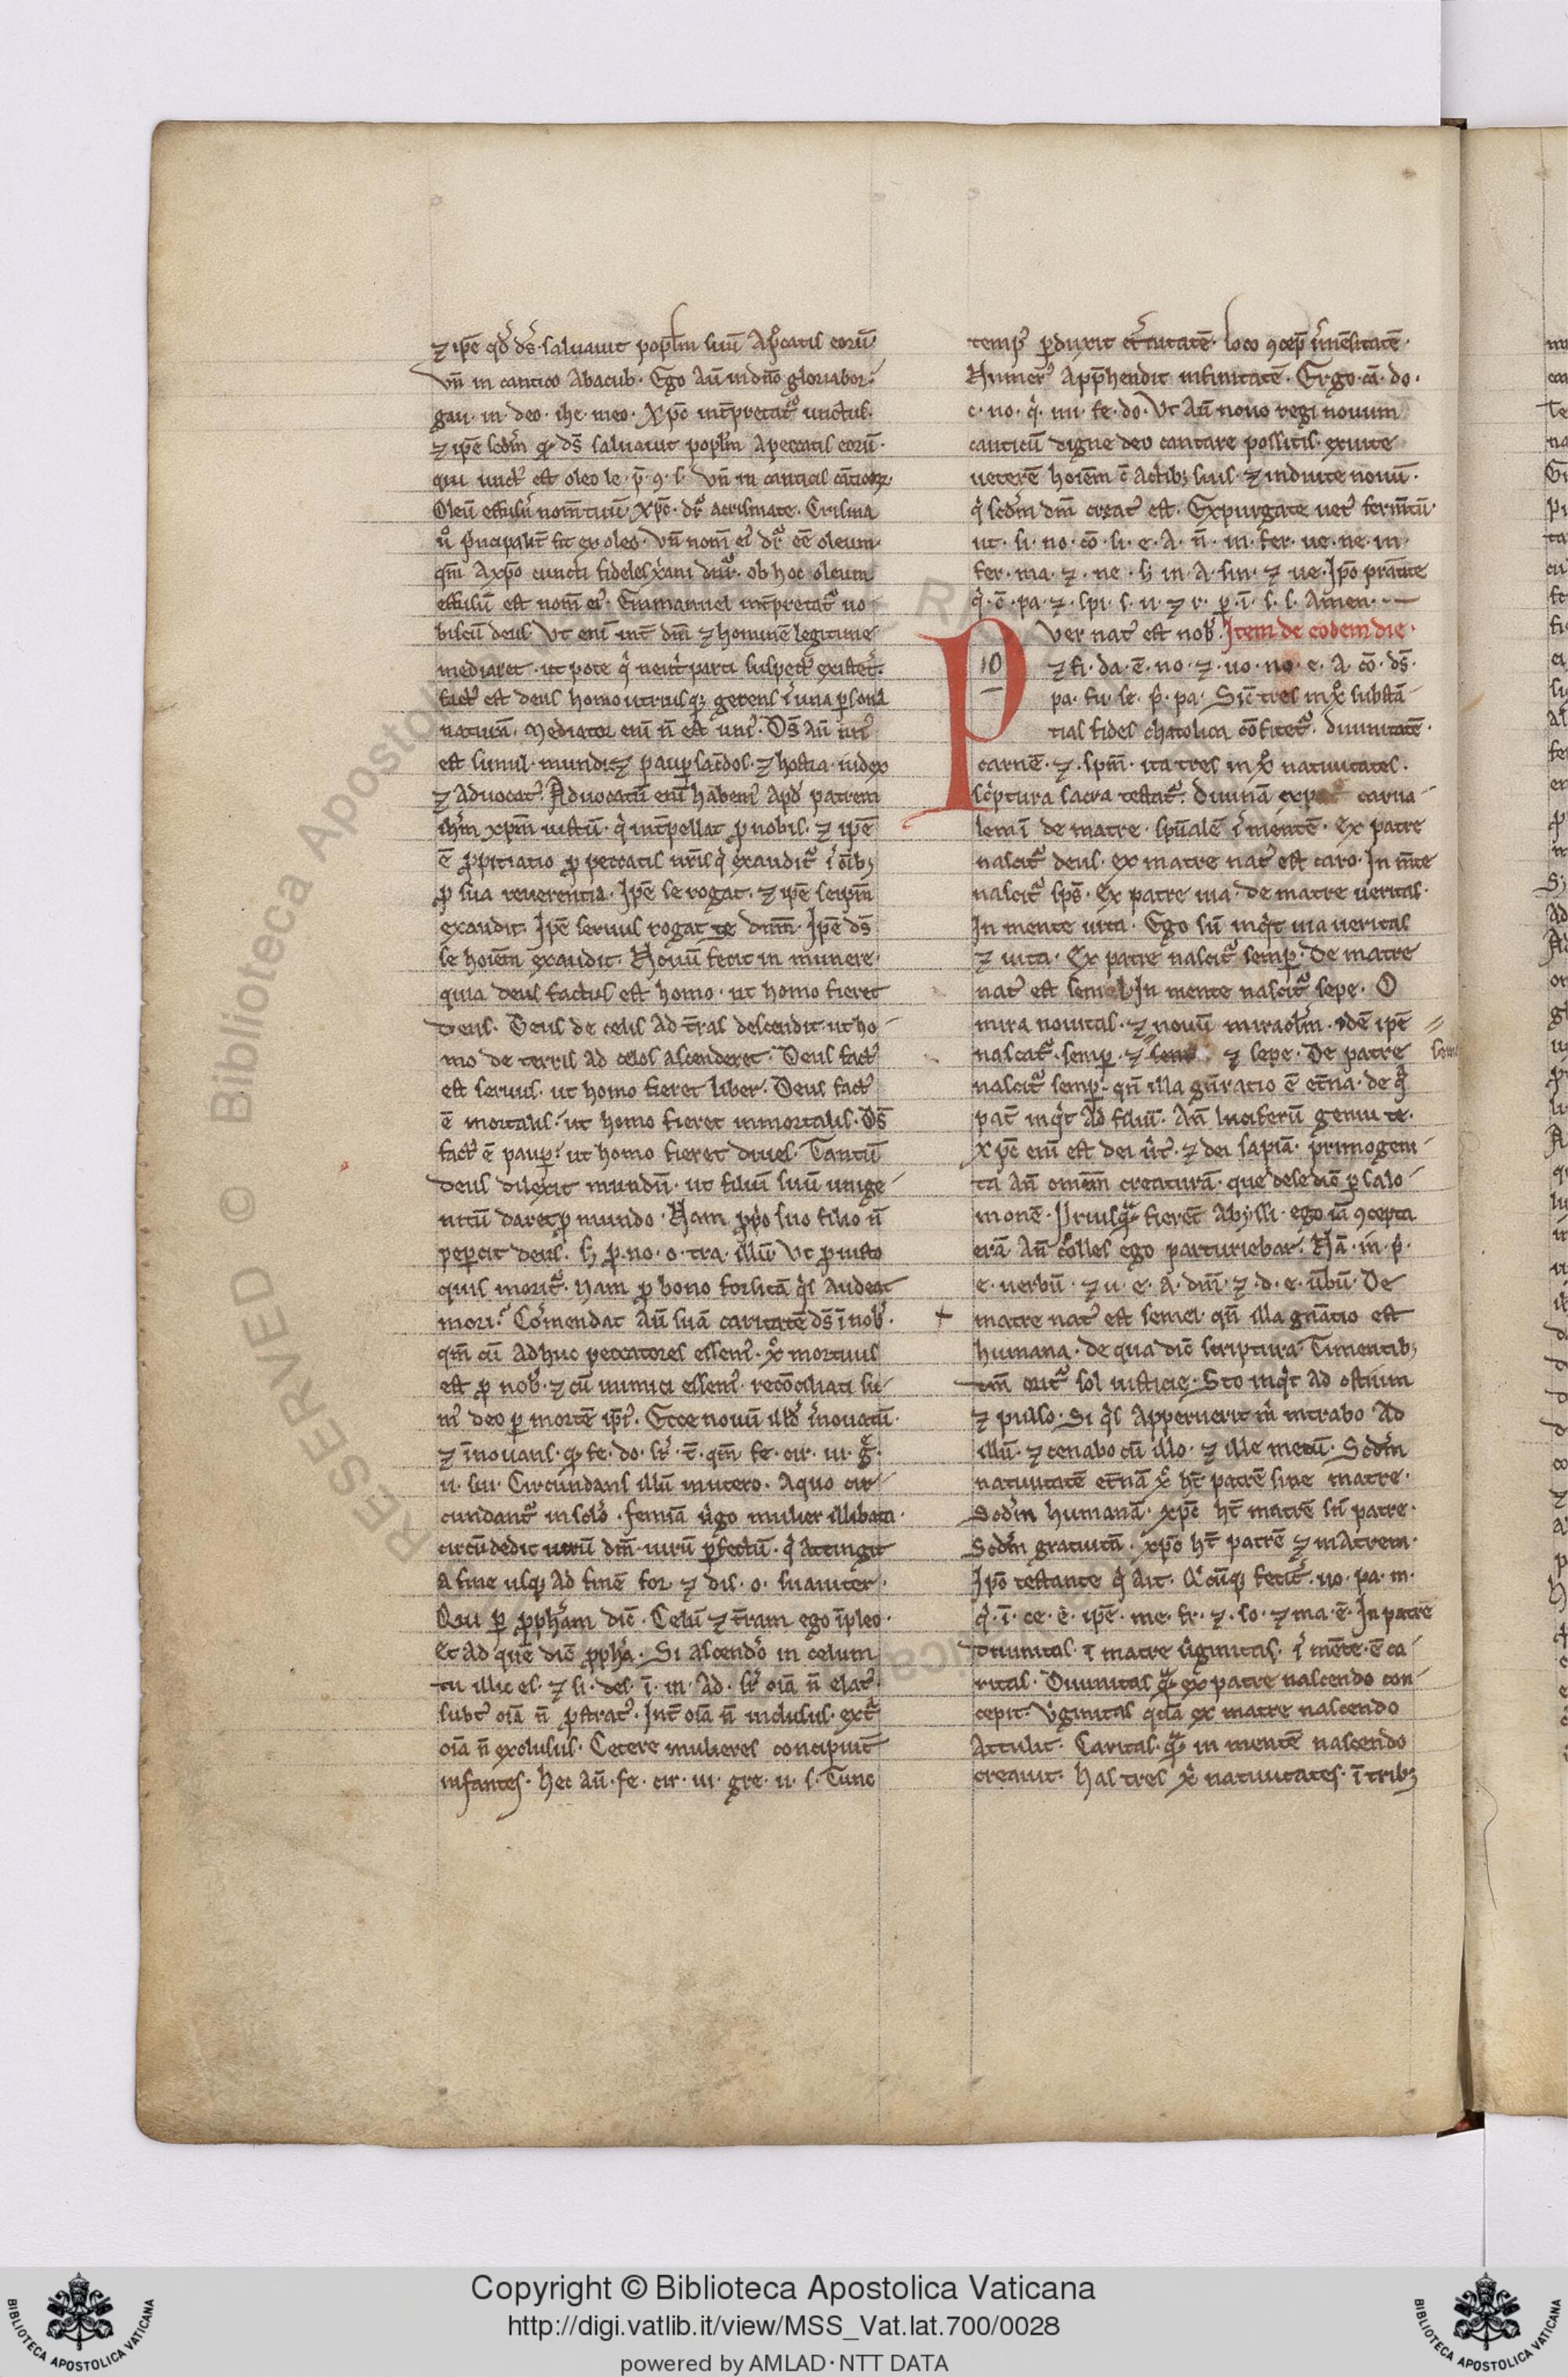 ⁊ ipē qd̾ ds̾ saluauit popl̄m suū A pͨcatis eorū
Vn̄ in cantico Abacub. Ego Aū in dn̄o gloriabor.
gau. in. deo. ihe. meo. Xp̄c int̄pretat᷑ unctus.
⁊ ipē scd̄m qͥ ds̄ saluauit popl̄m A peccatis eorū.
qui unct᷒ est oleo le. p̄. ꝯ. s. Vn̄ in canticis cāticoꝝ.
Oleū effusū nom̄ tuū. Xp̄c. dr᷑ a crismate. Crisma
u̾ principalit̄ fit ex oleo. Vn̄ nom̄ ei᷒ dr᷑ eē oleum.
qm̄ A xp̄o cuncti fideles xp̄iani dn̄r᷑. ob hoc oleum
effusū est nom̄ ei᷒. Emmanuel int̄pretat᷑ no
biscū deus. Vt eni᷒ int̄ dm̄ ⁊ hominē legitime
mediaret. ut pote qͥ neut̾ parti suspect᷒ existēt.
fact᷒ est deus homo utriusqꝫ gerens ī una p̱sona
naturā. Mediator eni᷒ n̄ est uni᷒. Ds̄ Aū un᷒
est simul. mundi ⁊ paup̱ sac̄dos. ⁊ hostia. iudex
⁊ Aduocat᷒. Aduocatū eni᷒ habem᷒ Apd̾ patrem
ihm̄ xpm̄ iustū. qͥ int̄pellat ꝓ nobis. ⁊ ipē
ē ꝓpitiatio ꝓ peccatis nr̄is qͥ exaudit᷑ ī oīb;
ꝓ sua reuerentia. Ipē se rogat. ⁊ ipē seipm̄
exaudit. Ipē seruus rogat se dnm̄. Ipē ds̄
se hoiēm exaudit. Nouū fecit in munere.
quia deus factus est homo. ut homo fieret
deus. Deus de celis Ad t̄ras descendit. ut ho
mo de terris ad celos ascenderet. Deus fact᷒
est seruus. ut homo fieret liber. Deus fact᷒
ē mortalis. ut homo fieret immortalis. Ds̄
fact᷒ ē paup̱. ut homo fieret diues. Tantū
deus dilexit mundū. ut filiū suū unige
nitū daret ꝓ mundo. Nam ꝓpͥo suo filio n̄
pep̱cit deus. s; ꝓ. no. o. tra. illū. Vt ꝓ iusto
quis morit᷑. Nam ꝓ bono forsitā qͥs Audeat
mori. Cōmendat Aū suā caritatē ds̄ ī nob᷒.
qm̄ cū Adhuc peccatores essem᷒. xp̄c mortuus
est ꝓ nob᷒. ⁊ cū inimici essem᷒. recōciliati su
m᷒ deo p̱ mortē ip̄i᷒. Ecce nouū illd̾ īnouatū.
⁊ īnouans. qͥ fe. do. sr̄. t̄. qm̄ fe. cir. ui. gͣ.
u. sui. Circundans illū in utero. A quo cir
cundant᷑ in solo. femīa ūgo mulier illibata.
circūdedit uirū dm̄. uirū p̱fectū. qͥ Attingit
a fine usqꝫ Ad finē for. ⁊ dis. o. suauiter.
Qui p̱ ꝓph̄am dic̄. Celū ⁊ t̄ram ego īpleo.
Et Ad quē dic̄ ꝓph̄a. Si ascendo̾ in celum
tu illic es. ⁊ si. des. ī. in. Ad. sr̄ oīa n̄ elat᷒.
subt̄ oīa n̄ ꝓstrat᷒. Int̄ oīa n̄ inclusus. extͣ
oīa n̄ exclusus. Cetere mulieres concipiūt
infantes. hec Aū. fe. cir. ui. gre. u. s. Tunc
temp᷒ p̱duxit et̄nitatē. Loco ꝯcep̄ īmēsitatē.
Numer᷒ App̄hendit infinitatē. Ergo. cā. do.
c. no. qͥ. mi. fe. do. Vt Aū nouo regi nouum
canticū digne deo cantare possitis. exuite
ueterē hoiēm c̄ Actib; suis. ⁊ induite nouū.
qͥ scd̄m dm̄ creat᷒ est. Expurgate uet᷒ferm̄tū.
ut. si. no. cō. si. e. A. n̄. in. fer. ue. ne. in.
fer. ma. ⁊. ne. s; in. A. sin. ⁊ ue. Ipō prāite
qͥ. c̄. pa. ⁊. spi. s. u. ⁊ r. p̱. ī. s. s. Amen.
Puer nat᷒ est nob᷒. Item de eodem die.
10
⁊ fi. da. ē. no. ⁊. uo. no. e. A. cō. ds̄.
pa. fu. se. p̄. pa. Sic̄ tres in xp̄o substā
tias fides chatolica cōfitet᷑. diuinitatē.
carnē. ⁊. spm̄. ita tres in xp̄o natiuitates.
sc̾ptura sacra testat᷑. Diuinā ex p carna
lem ī de matre. spūalē ī mentē. Ex patre
nascit᷑ deus. ex matre nat᷒ est caro. In m̄te
nascit᷑ sps̄. Ex patre uia. de matre ueritas.
In mente uita. Ego sū inqͥt uia ueritas
⁊ uita. Ex patre nascit᷑ semp̱. De matre
nat᷒ est semel. In mente nascit᷑ sepe. O
mira nouitas. ⁊ nouū miraclm̄. idē ipē
nascat᷑. semp̱. ⁊ ⁊ sepe. De patre
nascit᷑ semp̱. qn̄ illa gn̄ratio ē et̄na. de qͣ
pat̄ inqͥt Ad filiū. An̄ luciferū genui te.
Xp̄c eni᷒ est dei ūt᷒. ⁊ dei sapiā. primogeni
ta An̄ omnem creaturā. que de se dic̄ p̱ salo
monē. Priusqͣ fierēt Abyssi. ego iā ꝯcepta
erā. An̄ colles ego parturiebar. Nā. in. p̄.
e. uerbū. ⁊ u. e. A. dm̄. ⁊. d. e. ūbū. De
matre nat᷒ est semel. qn̄ illa gn̄atio est
humana. de qua dic̄ scriptura. Timentib;
dm̄ orit᷑ sol iusticie. Sto inqͥt Ad ostium
⁊ pulso. Si qͥs Apperuerit m̄ intrabo Ad
illū. ⁊ cenabo cū illo. ⁊ ille mecū. Scd̄m
natiuitatē et̄nā xp̄c ht̄ patrē sine matre.
Scd̄m humanā. xp̄c ht̄ matrē sn̄ patre.
Scd̄m gratuitā. xp̄c ht̄ patrē ⁊ mAtrem.
Ipō testante qͥ Ait. Qͥcūqꝫ fecit̾. uo. pa. m.
qͥ. ī. ce. ē. ipē. me. fr. ⁊. so. ⁊ ma. ē. In patre
diuinitas. ī matre ūginitas. ī mēte. ē ca
ritas. Diuinitas qͣ ex patre nascendo con
cepit. Vginitas qd̄ā ex matre nascendo
Attulit. Caritas. qͣ in mentē nascendo
creauit. has tres xp̄i natiuitates. ī trib;
Copyright © Biblioteca Apostolica Vaticana
http://digi.vatlib.it/view/MSS_Vat.lat.700/0028
powered by AMLAD·NTT DATA
BIBLIOTECA APOSTOLICA VATICANA
BIBLIOTECA APOSTOLICA VATICANA